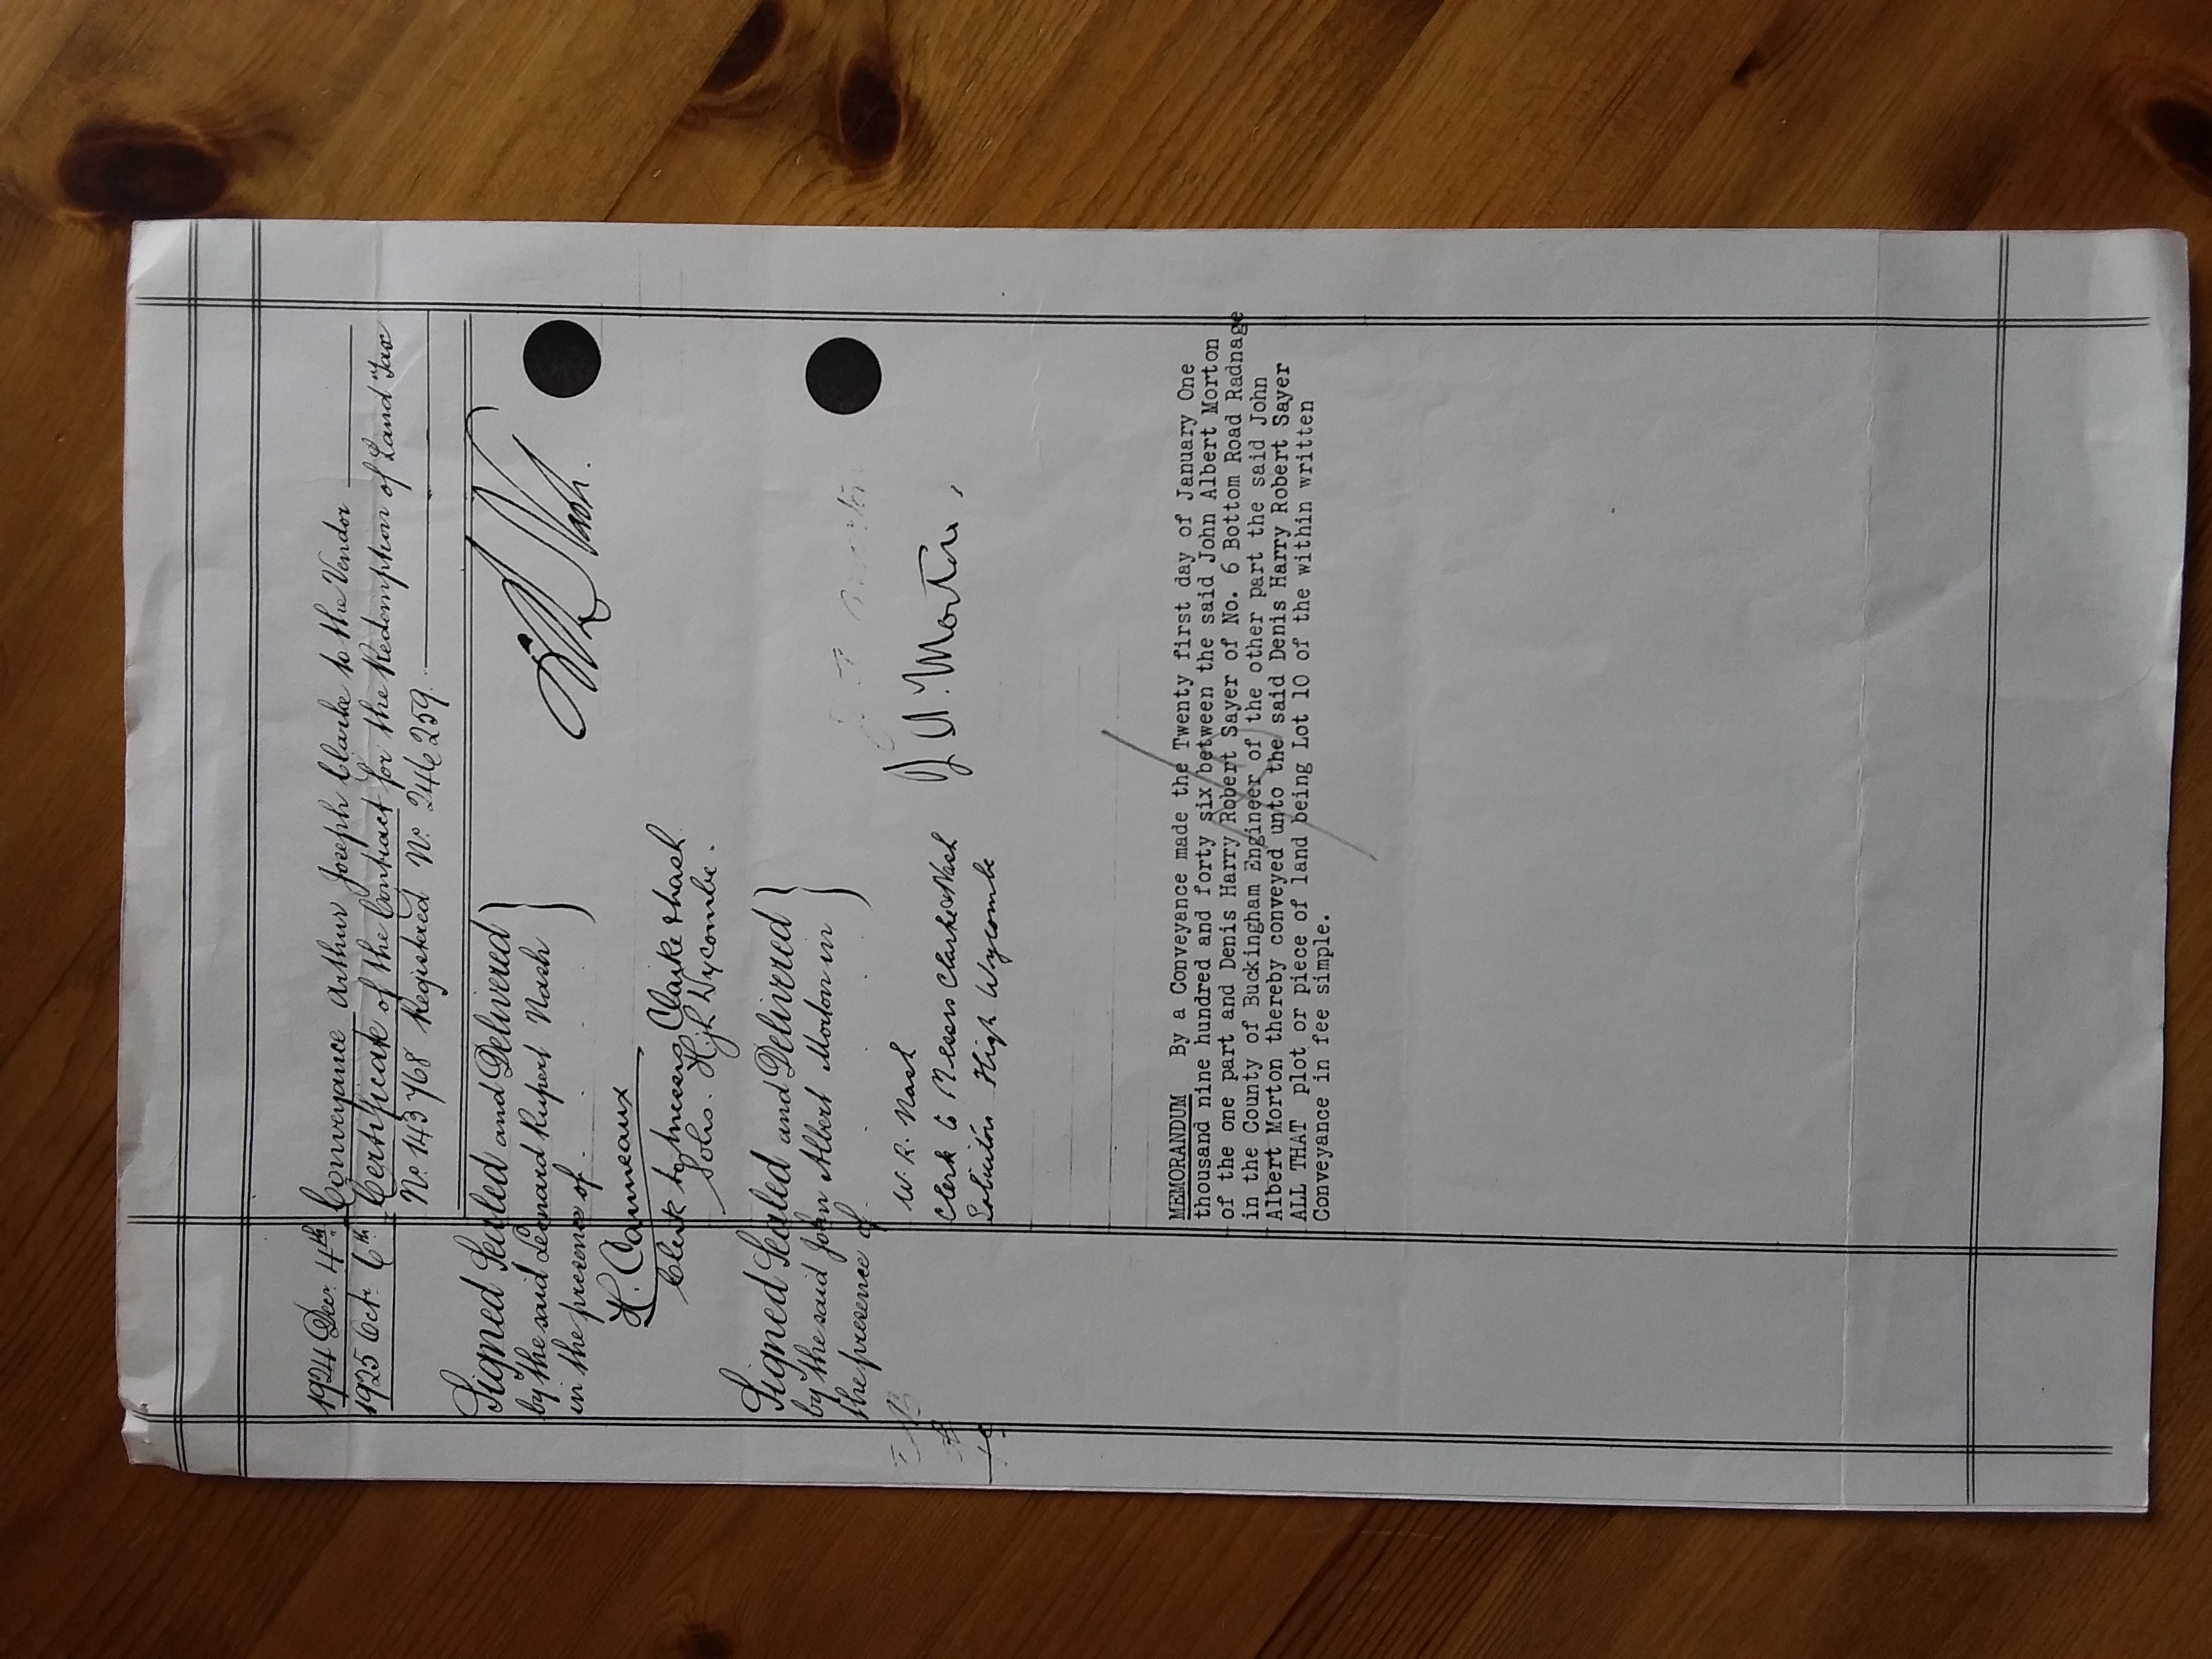 1924 Dec. 4th Conveyance Arthur Joseph Clarke to the Vendor
1925 Oct. 6th Certificate of the Contract for the Redemption of Land Tax
No. 143768 Registered No. 246259.
Signed Sealed and Delivered
by the said Leonard Rupert Nash
in the presence of
Nash.
Clerk to Messrs Clarke & Nash
Solrs. High Wycombe.
Signed Sealed and Delivered
by the said John Albert Morton in
the presence of
W. R. Nash
Clerk to Messrs Clarke & Nash
Solicitors High Wycombe
J A. Morton,
MEMORANDUM By a Conveyance made the Twenty first day of January One
thousand nine hundred and forty six between the said John Albert Morton
of the one part and Denis Harry Robert Sayer of No. 6 Bottom Road Radnage
in the County of Buckingham Engineer of the other part the said John
Albert Morton thereby conveyed unto the said Denis Harry Robert Sayer
ALL THAT plot or piece of land being Lot 10 of the within written
Conveyance in fee simple.